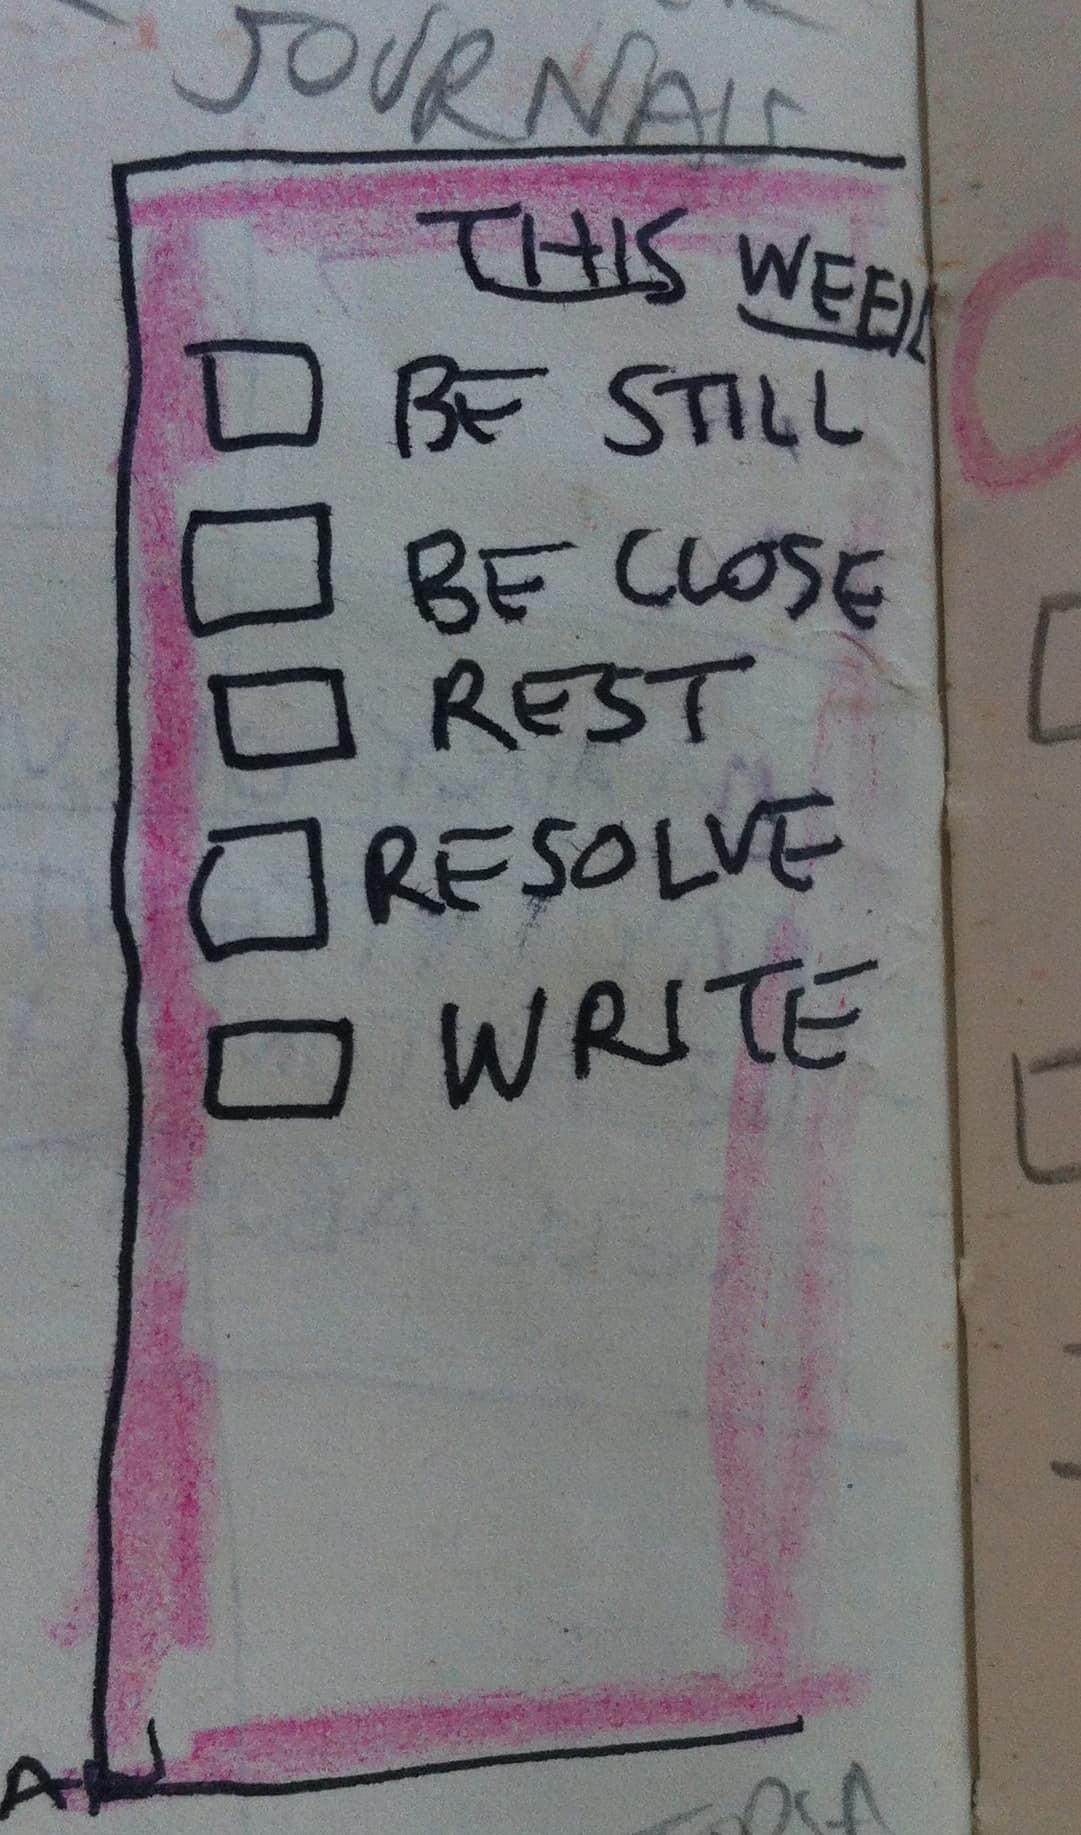 JOURNALS
THIS WEEK
BE STILL
BE CLOSE
REST
RESOLVE
WRITE